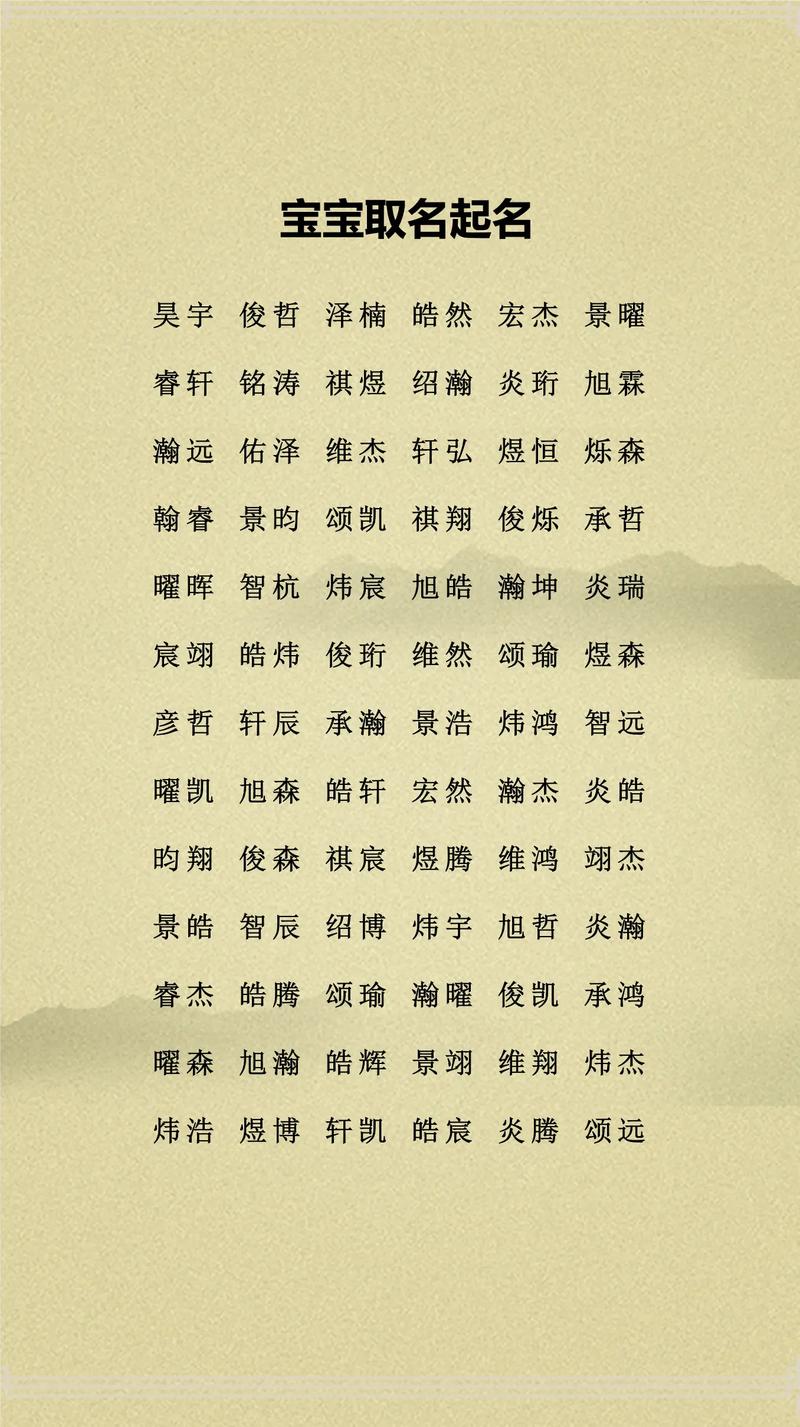 宝宝取名起名
昊宇 俊哲 泽楠 皓然 宏杰 景曜
睿轩 铭涛 祺煜 绍瀚 炎珩 旭霖
瀚远 佑泽 维杰 轩弘 煜恒 烁森
翰睿 景昀 颂凯 祺翔 俊烁 承哲
曜晖 智杭 炜宸 旭皓 瀚坤 炎瑞
宸翊 皓炜 俊珩 维然 颂瑜 煜森
彦哲 轩辰 承瀚 景浩 炜鸿 智远
曜凯 旭森 皓轩 宏然 瀚杰 炎皓
昀翔 俊森 祺宸 煜腾 维鸿 翊杰
景皓 智辰 绍博 炜宇 旭哲 炎瀚
睿杰 皓腾 颂瑜 瀚曜 俊凯 承鸿
曜森 旭瀚 皓辉 景翊 维翔 炜杰
炜浩 煜博 轩凯 皓宸 炎腾 颂远